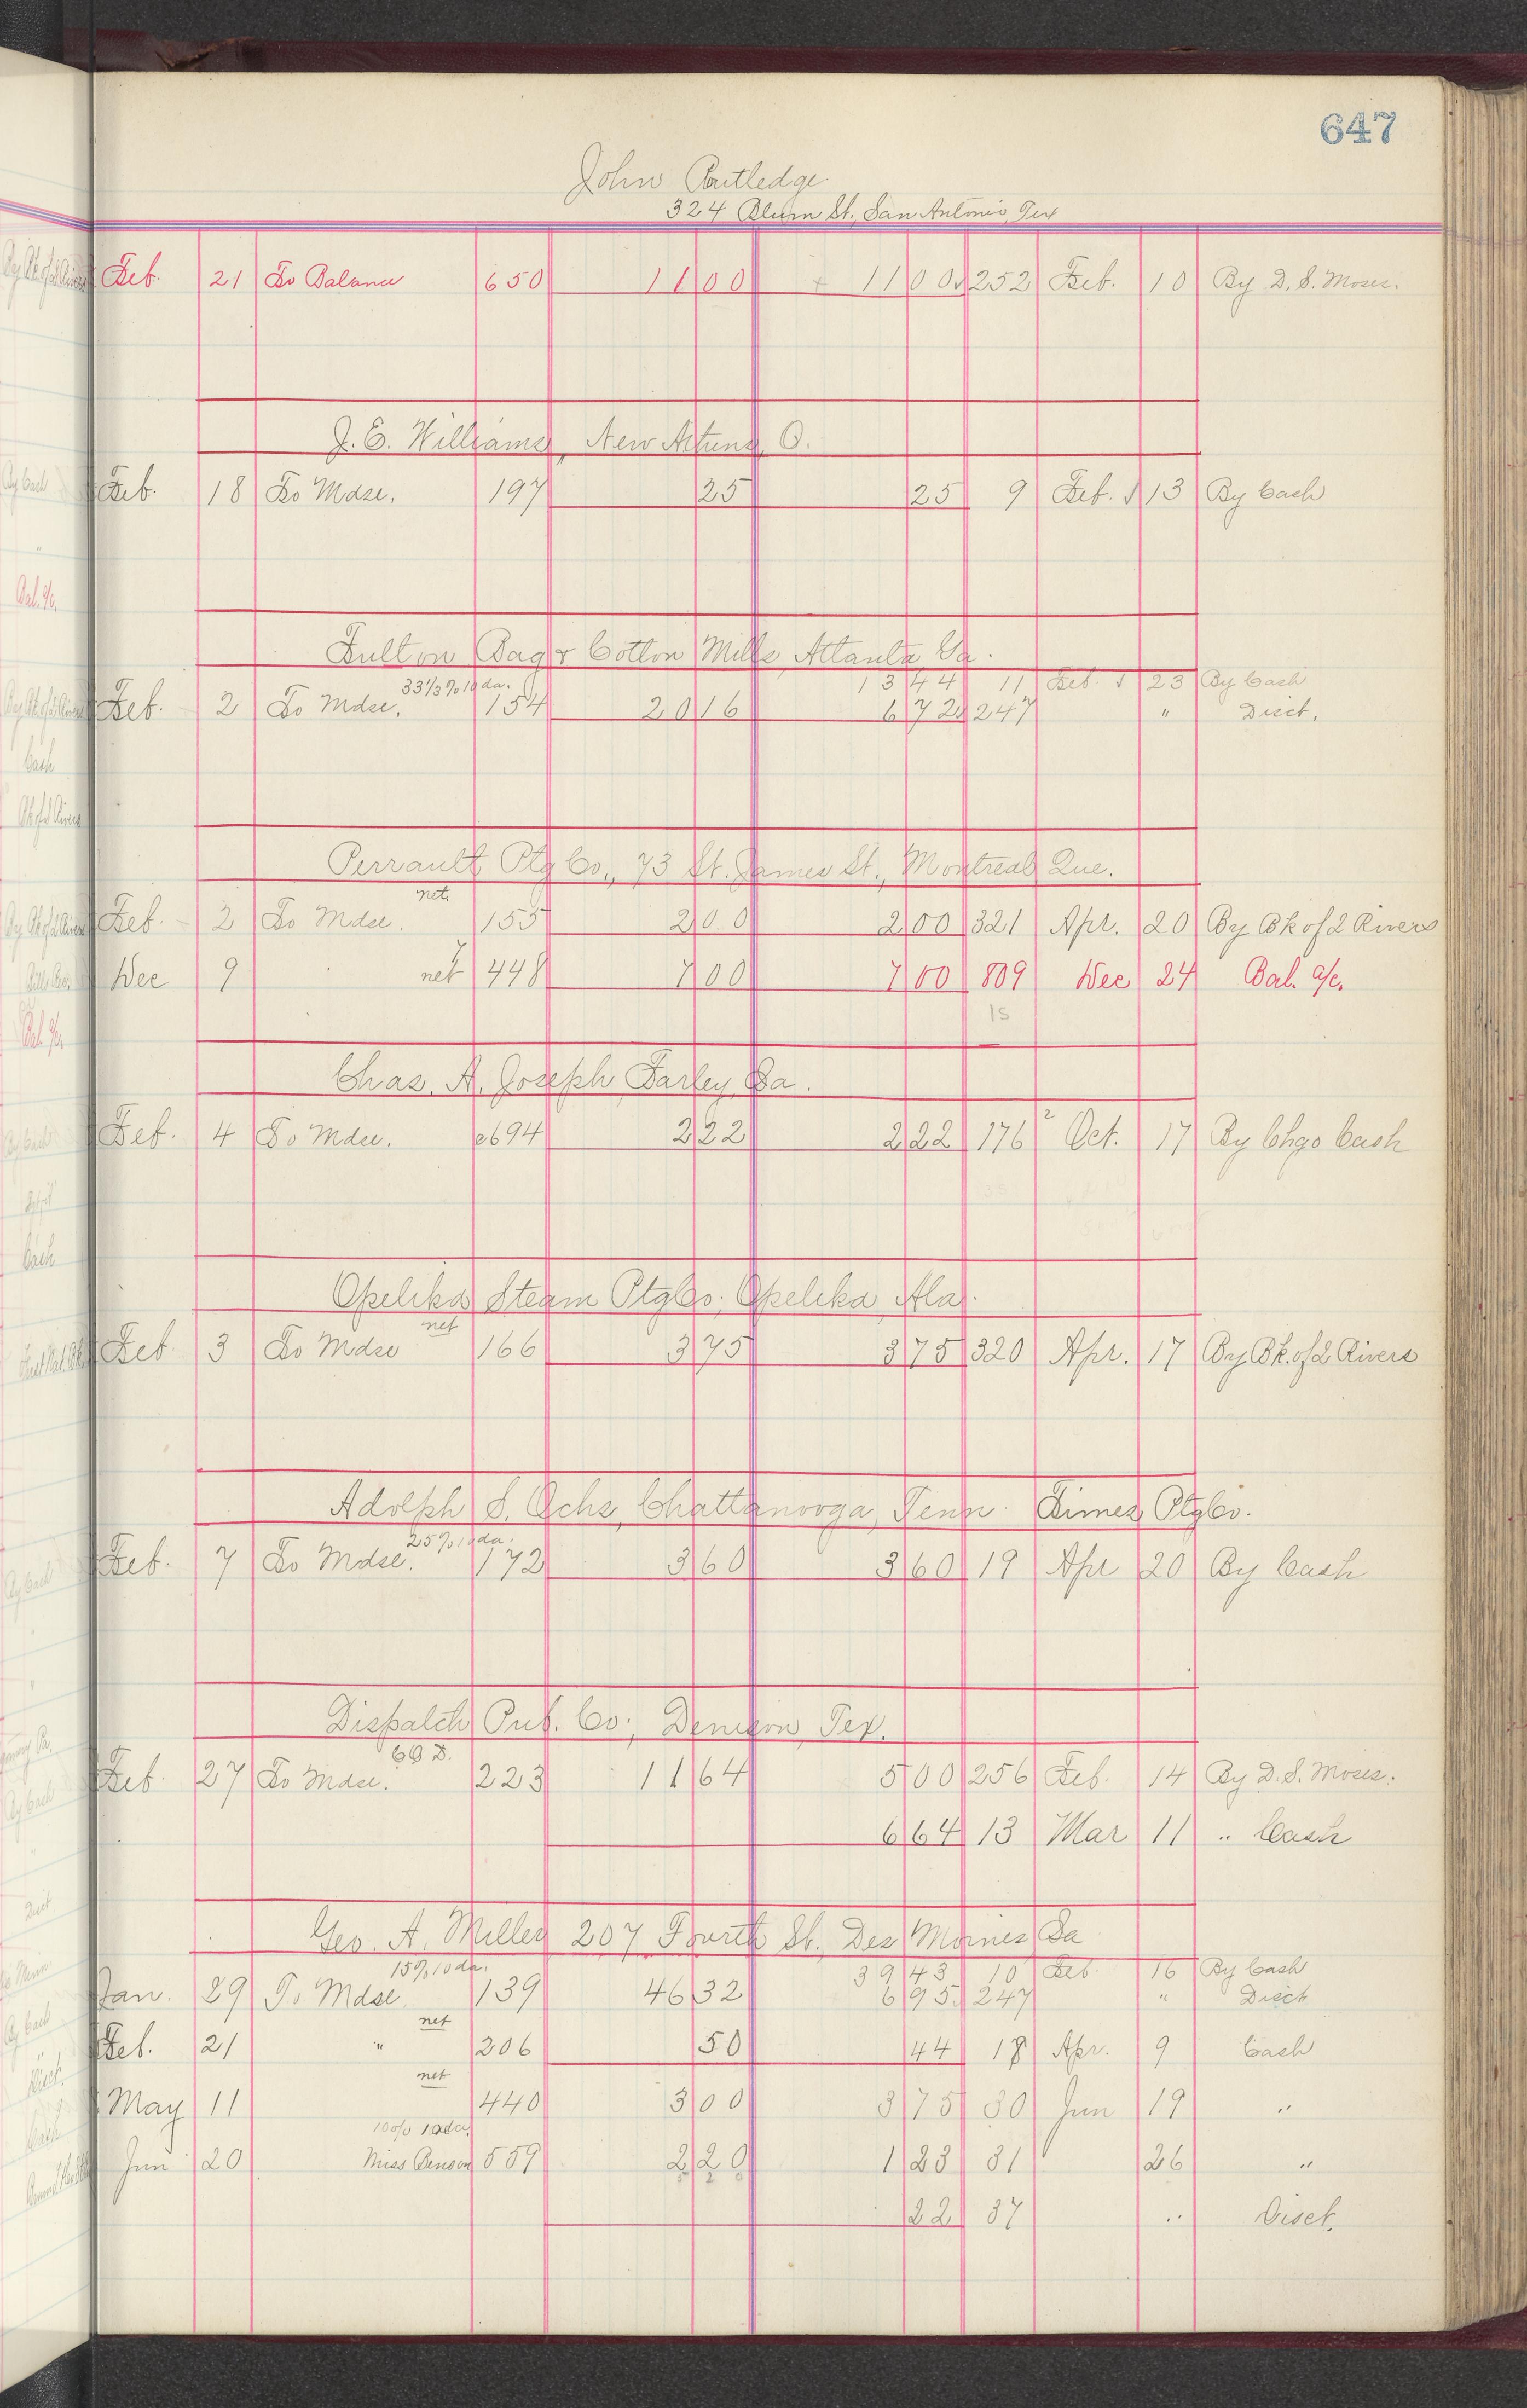 647
John Rutledge
324 Blum St., San Antonio, Tex
Feb. 21 To Balance 650 11 00 11 00 252 Feb. 10 By D. S. Moses.
J. E. Williams, New Athens, O.
Feb. 18 To Mdse. 197 25 25 9 Feb. 13 By Cash
Fulton Bag & Cotton Mills, Atlanta Ga.
33 1/3 % 10 da. 13 44 11 Feb. 23 By Cash
Feb. 2 To Mdse. 154 20 16 6 72 247 " Disct.
Perrault Ptg Co., 73 St. James St., Montreal Que.
net.
Feb. 2 To Mdse. 155 2 00 2 00 321 Apr. 20 By Bk of 2 Rivers
Dec 9 net 448 7 00 7 00 809 Dec 24 Bal. a/c.
15
Chas. A. Joseph, Farley, Ia.
Feb. 4 To Mdse. e694 2 22 2 22 176 2 Oct. 17 By Chgo Cash
Opelika Steam Ptg Co. Opelika, Ala.
net
Feb 3 To Mdse 166 3 75 3 75 320 Apr. 17 By Bk. of 2 Rivers
Adolph S. Ochs, Chattanooga, Tenn. Times Ptg Co.
25% 10 da.
Feb. 7 To Mdse. 172 3 60 3 60 19 Apr 20 By Cash
Dispatch Pub. Co., Denison, Tex.
60 D.
Feb. 27 To Mdse. 223 11 64 5 00 256 Feb. 14 By D. S. Moses.
6 64 13 Mar 11 " Cash
Geo. A. Miller 207 Fourth St. Des Moines Ia
15% 10 da. 39 43 10 Feb. 16 By Cash
Jan. 29 To Mdse 139 46 32 6 95 247 " Disct
net
Feb. 21 " 206 50 44 18 Apr. 9 Cash
net
May 11 440 3 00 3 75 30 Jun 19 "
10% 10 da.
Jun 20 Miss Benson 559 2 20 1 23 31 26 "
22 37 " Disct.